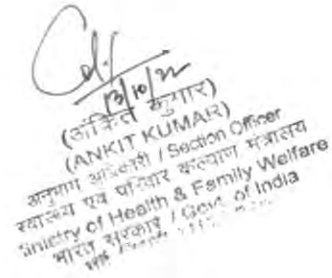 13/10/22
(अंकित कुमार)
(ANKIT KUMAR)
अनुभाग अधिकारी / Section Officer
स्वास्थ्य एवं परिवार कल्याण मंत्रालय
Ministry of Health & Family Welfare
भारत सरकार / Govt. of India